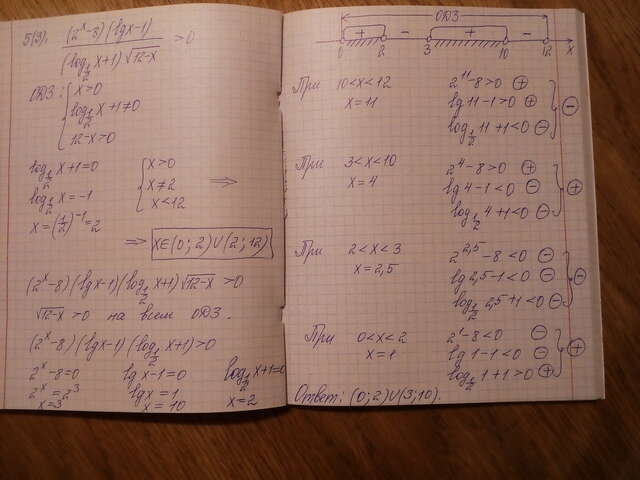 5(3). (2^x-8)(lgx-1) / (log_{1/2} x+1)√12-x >0
ОДЗ: { x>0
log_{1/2} x+1≠0
12-x>0
log_{1/2} x+1=0 { x>0
log_{1/2} x=-1 x≠2 ⟹
x=(1/2)^{-1}=2 x<12
⟹ x∈(0;2)∪(2;12)
(2^x-8)(lgx-1)(log_{1/2} x+1)√12-x >0
√12-x >0 на всем ОДЗ.
(2^x-8)(lgx-1)(log_{1/2} x+1)>0
2^x-8=0 lgx-1=0 log_{1/2} x+1=0
2^x=2^3 lgx=1 x=2
x=3 x=10
ОДЗ
+ - + -
0 2 3 10 12 x
При 10<x<12 2^{11}-8>0 ⊕
x=11 lg11-1>0 ⊕ ⊖
log_{1/2} 11+1<0 ⊖
При 3<x<10 2^4-8>0 ⊕
x=4 lg4-1<0 ⊖ ⊕
log_{1/2} 4+1<0 ⊖
При 2<x<3 2^{2,5}-8<0 ⊖
x=2,5 lg2,5-1<0 ⊖ ⊖
log_{1/2} 2,5+1<0 ⊖
При 0<x<2 2^1-8<0 ⊖
x=1 lg1-1<0 ⊖ ⊕
log_{1/2} 1+1>0 ⊕
Ответ: (0;2)∪(3;10).